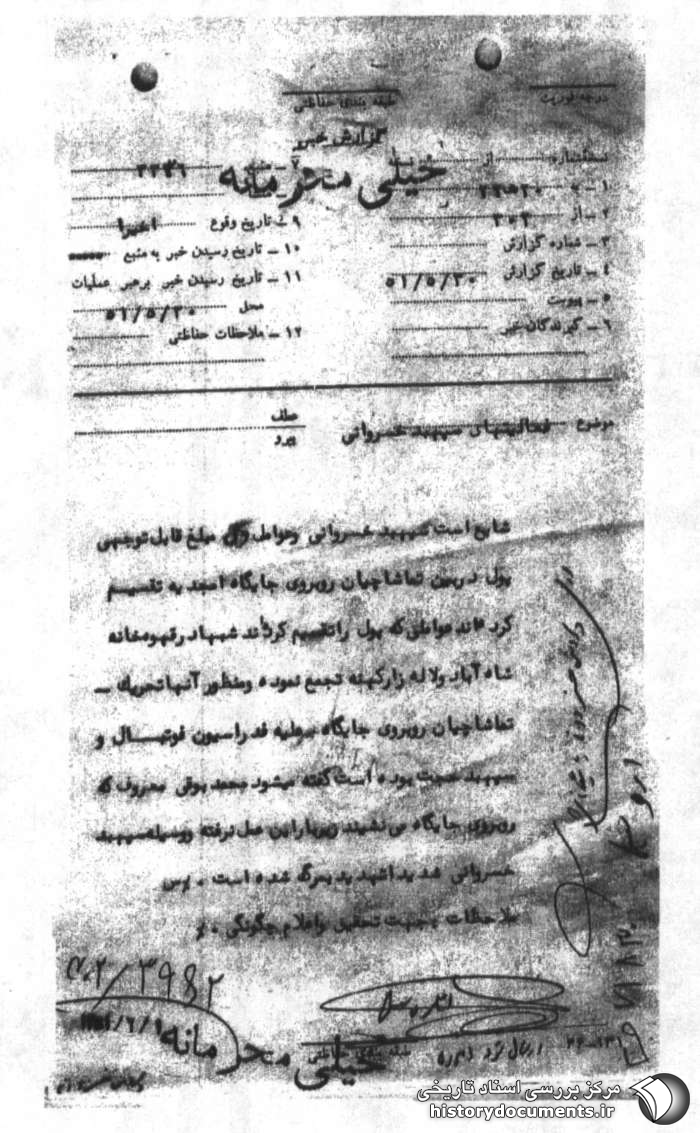 درجه فوریت
طبقه بندی حفاظتی
گزارش خبر
خیلی محرمانه
نسخه شماره از
۱ ـ به ۲۲۵۲۰
۲ ـ از ۳۰۲
۳ ـ شماره گزارش
۴ ـ تاریخ گزارش ۵۱/۵/۳۰
۵ ـ پیوست
۶ ـ گیرندگان خبر
۷ ـ
۹ ـ تاریخ وقوع اخیرا
۱۰ ـ تاریخ رسیدن خبر به منبع
۱۱ ـ تاریخ رسیدن خبر برهبر عملیات
محل ۵۱/۵/۳۰
۱۲ ـ ملاحظات حفاظتی
موضوع فعالیتهای سپهبد خسروانی
عطف
پیرو
شایع است سپهبد خسروانی وعوامل مبلغ قابل توجهی
پول دربین تماشاچیان روبروی جایگاه امجدیه تقسیم
کرده اند عواملی که پول راتقسیم کرده اند شبها درقهوه خانه
شاه آباد ولاله زارکهنه تجمع نموده ومنظور آنها تحریک ـ
تماشاچیان روبروی جایگاه برعلیه فدراسیون فوتبال و
سپهبد حجت بوده است گفته میشود محمد بوقی معروف که
روبروی جایگاه می نشیند زیربار این عمل نرفته وبوسیله سپهبد
خسروانی شدیدا تهدید بمرگ شده است . پس
ملاحظات بجهت تحقیق واعلام چگونگی .
۴۰۲/۳۹۸۲
۱۳۵۱/۶/۱
ارسال شود
طبقه بندی حفاظتی
خیلی محرمانه
مرکز بررسی اسناد تاریخی
historydocuments.ir